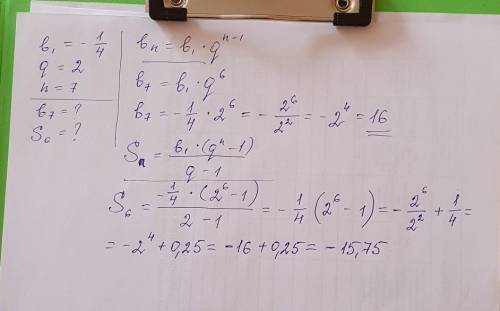 b₁ = -1/4
q = 2
n = 7
b₇ = ?
S₆ = ?
bₙ = b₁ · qⁿ⁻¹
b₇ = b₁ · q⁶
b₇ = -1/4 · 2⁶ = - 2⁶/2² = - 2⁴ = 16
Sₙ = b₁ · (qⁿ - 1) / q - 1
S₆ = -1/4 · (2⁶ - 1) / 2 - 1 = - 1/4 (2⁶ - 1) = - 2⁶/2² + 1/4 =
= - 2⁴ + 0,25 = -16 + 0,25 = - 15,75